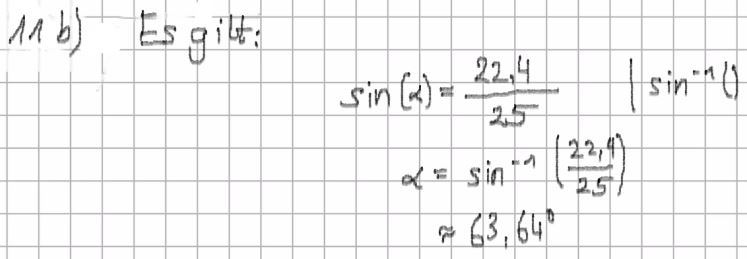 11 b) Es gilt:
sin(α) = 22,4/25 | sin⁻¹()
α = sin⁻¹(22,4/25)
≈ 63,64°